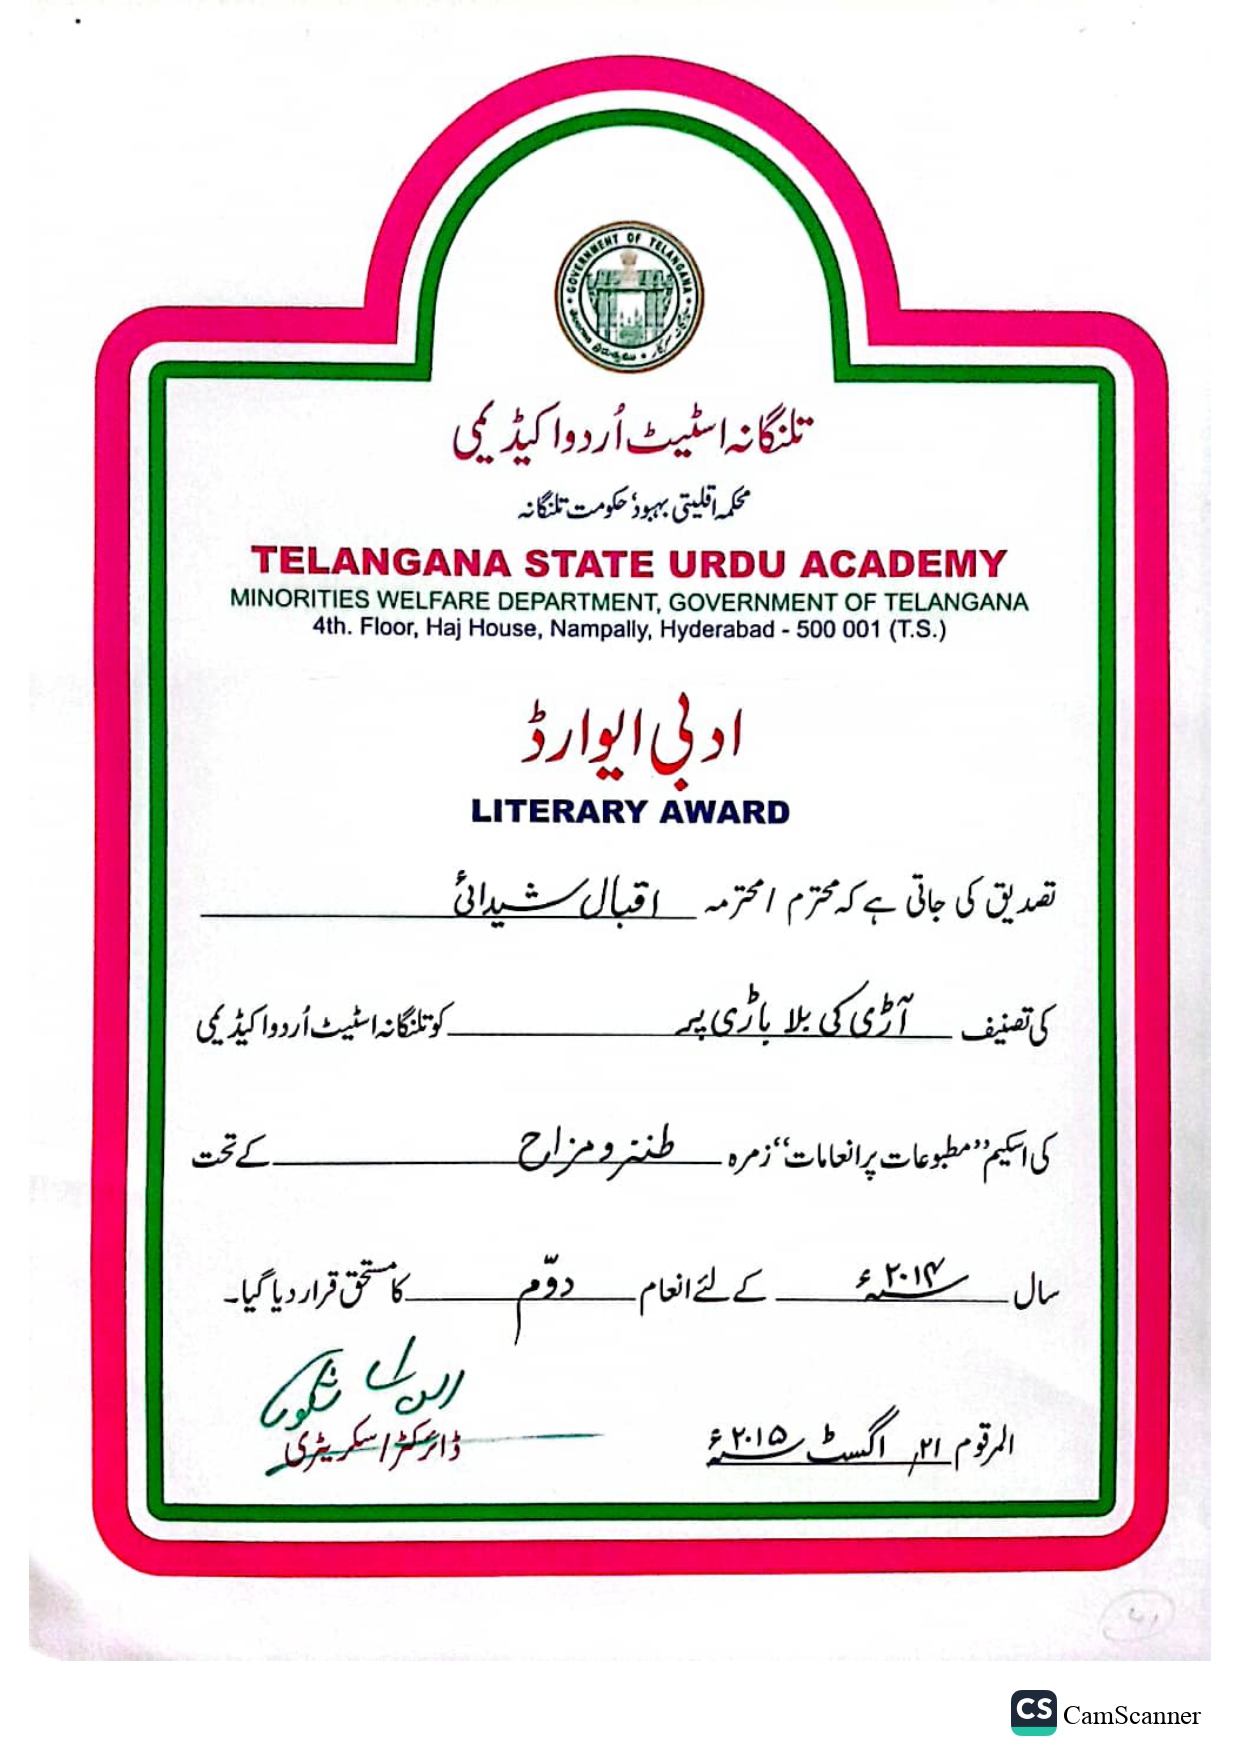 GOVERNMENT OF TELANGANA
تلنگانہ اسٹیٹ اُردو اکیڈیمی
محکمہ اقلیتی بہبود، حکومت تلنگانہ
TELANGANA STATE URDU ACADEMY
MINORITIES WELFARE DEPARTMENT, GOVERNMENT OF TELANGANA
4th. Floor, Haj House, Nampally, Hyderabad - 500 001 (T.S.)
ادبی ایوارڈ
LITERARY AWARD
تصدیق کی جاتی ہے کہ محترم / محترمہ اقبال شیدائی
کی تصنیف آڑی کی بلا باڑی پر کو تلنگانہ اسٹیٹ اُردو اکیڈیمی
کی اسکیم ”مطبوعات پر انعامات“ زمرہ طنز و مزاح کے تحت
سال ۲۰۱۴ء کے لئے انعام دوّم کا مستحق قرار دیا گیا۔
المرقوم ۲۱؍ اگسٹ ۲۰۱۵ء
ڈائرکٹر / سکریٹری
CS CamScanner